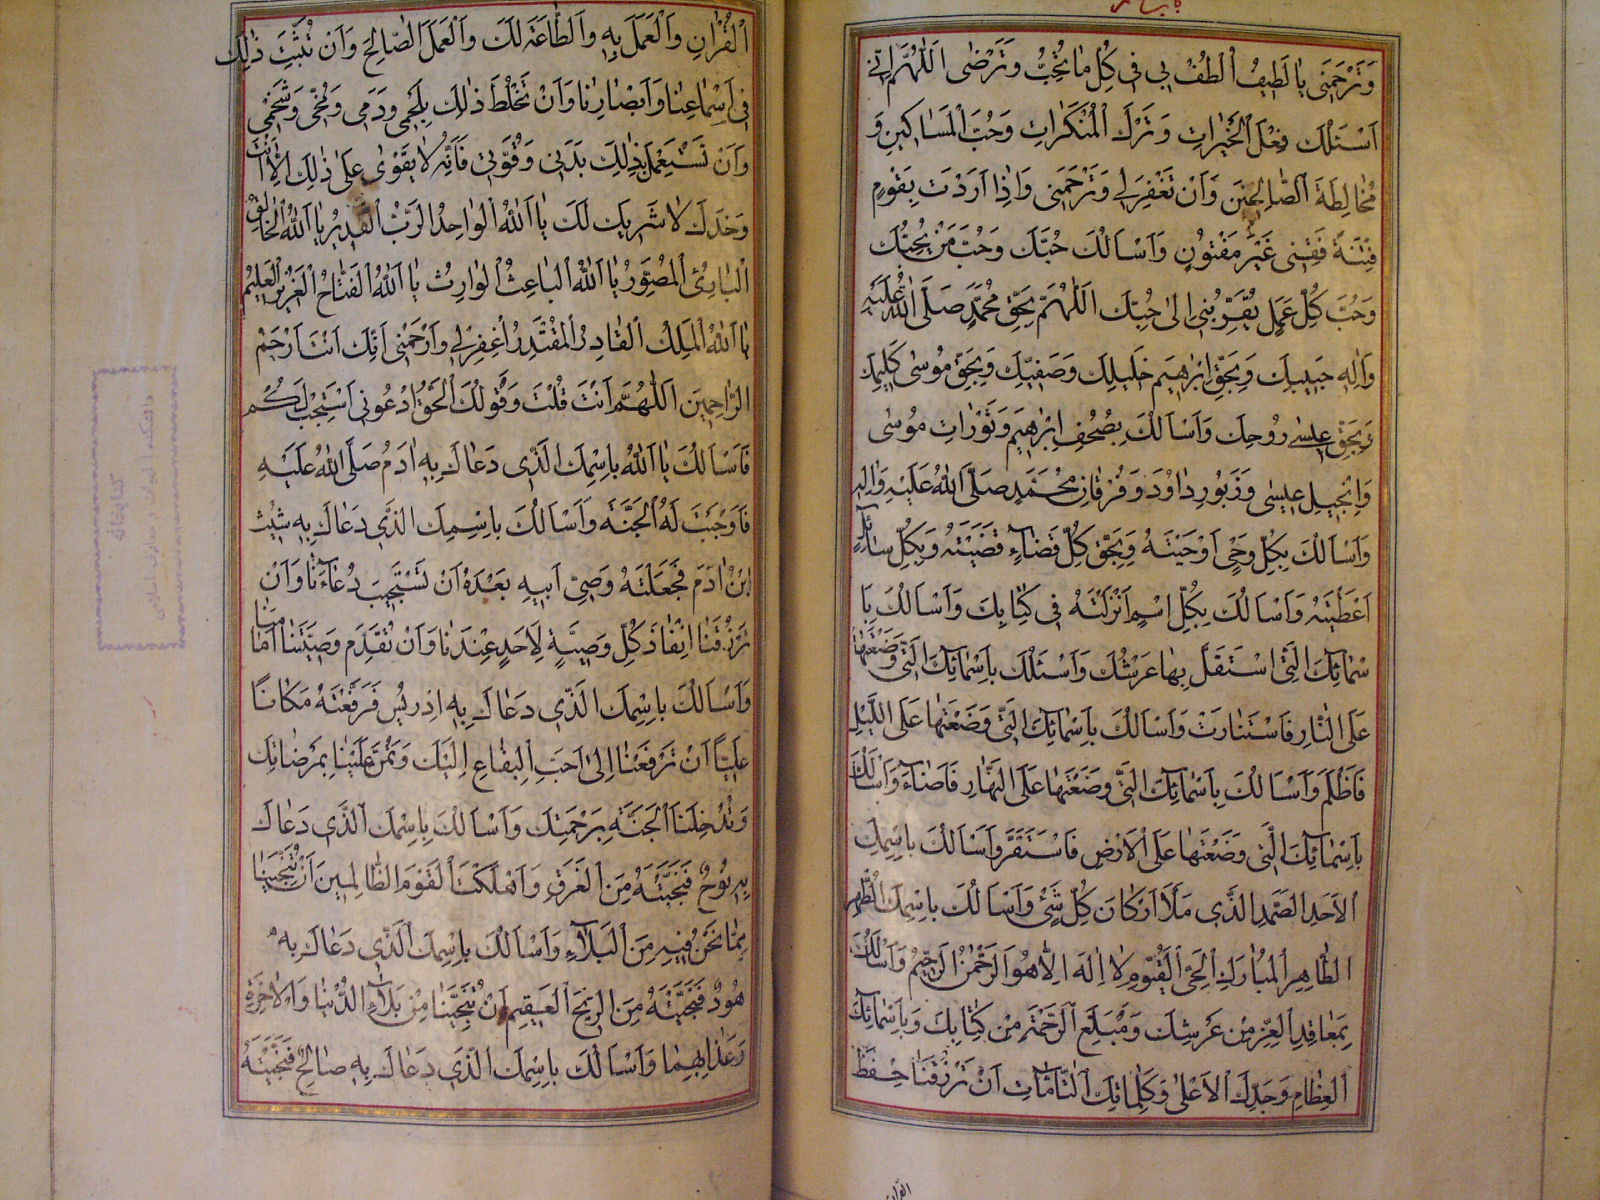 وَتَرْحَمَنِی یٰا لَطیٖفُ اُلْطُفْ بی فی کُلِّ مٰا تُحِبُّ وَتَرْضٰی اَللّٰهُمَّ اِنّی
اَسْئَلُكَ فِعْلَ الْخَیْرٰاتِ وَتَرْكَ الْمُنْکَرٰاتِ وَحُبَّ الْمَسٰاکینِ وَ
مُخٰالِطَةَ الصّٰالِحینَ وَاَنْ تَغْفِرَلی وَتَرْحَمَنی وَاِذٰا اَرَدْتَ بِقَوْمٍ
فِتْنَةً فَقِنی غَیْرَ مَفْتُونٍ وَاَسْاَلُكَ حُبَّكَ وَحُبَّ مَنْ یُحِبُّكَ
وَحُبَّ کُلِّ عَمَلٍ یُقَرِّبُنی اِلیٰ حُبِّكَ اَللّٰهُمَّ بِحَقِّ مُحَمَّدٍ صَلَّی اللّٰهُ عَلَیْهِ
وَاٰلِهِ حَبیبِكَ وَبِحَقِّ اِبْرٰهیمَ خَلیلِكَ وَصَفِیِّكَ وَبِحَقِّ مُوسٰی کَلیمِكَ
وَبِحَقِّ عیسٰی رُوحِكَ وَاَسْاَلُكَ بِصُحُفِ اِبْرٰهیمَ وَتَوْرٰاتِ مُوسٰی
وَاِنْجیلِ عیسٰی وَزَبُورِ دٰاوُدَ وَفُرْقٰانِ مُحَمَّدٍ صَلَّی اللّٰهُ عَلَیْهِ وَاٰلِهِ
وَاَسْاَلُكَ بِکُلِّ وَحْیٍ اَوْحَیْتَهُ وَبِحَقِّ کُلِّ قَضٰآءٍ قَضَیْتَهُ وَبِکُلِّ سٰائِلٍ
اَعْطَیْتَهُ وَاَسْاَلُكَ بِکُلِّ اسْمٍ اَنْزَلْتَهُ فی کِتٰابِكَ وَاَسْاَلُكَ بِاَ
سْمٰائِكَ الَّتی اسْتَقَلَّ بِهٰا عَرْشُكَ وَاَسْئَلُكَ بِاَسْمٰائِكَ الَّتی وَضَعْتَهٰا
عَلَی النّٰارِ فَاسْتَنٰارَتْ وَاَسْاَلُكَ بِاَسْمٰائِكَ الَّتی وَضَعْتَهٰا عَلَی اللَّیْلِ
فَاَظْلَمَ وَاَسْاَلُكَ بِاَسْمٰائِكَ الَّتی وَضَعْتَهٰا عَلَی النَّهٰارِ فَاَضٰاءَ وَاَسْاَلُكَ
بِاَسْمٰآئِكَ الَّتی وَضَعْتَهٰا عَلَی الْاَرْضِ فَاسْتَقَرَّ وَاَسْاَلُكَ بِاسْمِكَ
الْاَحَدِ الصَّمَدِ الَّذی مَلَأَ اَرْکٰانَ کُلِّ شَیْئٍ وَاَسْاَلُكَ بِاسْمِكَ الطُّهْرِ
الطّٰاهِرِ الْمُبٰارَكِ الْحَیِّ الْقَیُّومِ لٰا اِلٰهَ اِلّٰا هُوَ الرَّحْمٰنُ الرَّحیمُ وَاَسْاَلُكَ
بِمَعٰاقِدِ الْعِزِّ مِنْ عَرْشِكَ وَمَبْلَغِ الرَّحْمَةِ مِنْ کِتٰابِكَ وَبِاَسْمٰائِكَ
الْعِظٰامِ وَجَدِّكَ الْاَعْلٰی وَکَلِمٰاتِكَ التّٰامّٰاتِ اَنْ تَرْزُقَنٰا حِفْظَ
الْقُرْاٰنِ وَالْعَمَلَ بِهِ وَالطّٰاعَةَ لَكَ وَالْعَمَلَ الصّٰالِحَ وَاَنْ تُثَبِّتَ ذٰلِكَ
فی اَسْمٰاعِنٰا وَاَبْصٰارِنٰا وَاَنْ تَخْلُطَ ذٰلِكَ بِلَحْمی وَدَمی وَمُخّی وَشَحْمی
وَاَنْ تَسْتَعْمِلَ بِذٰلِكَ بَدَنی وَقُوَّتی فَاِنَّهُ لٰا یَقْوٰی عَلیٰ ذٰلِكَ اِلّٰا اَنْتَ
وَحْدَكَ لٰا شَریكَ لَكَ یٰا اَللّٰهُ الْوٰاحِدُ الرَّبُّ الْقَدیرُ یٰا اَللّٰهُ الْخٰالِقُ
الْبٰارِئُ الْمُصَوِّرُ یٰا اَللّٰهُ الْبٰاعِثُ الْوٰارِثُ یٰا اَللّٰهُ الْفَتّٰاحُ الْعَزیزُ الْعَلیمُ
یٰا اَللّٰهُ الْمَلِكُ الْقٰادِرُ الْمُقْتَدِرُ اغْفِرْلی وَارْحَمْنی اِنَّكَ اَنْتَ اَرْحَمُ
الرّٰاحِمینَ اَللّٰهُمَّ اَنْتَ قُلْتَ وَقَوْلُكَ الْحَقُّ ادْعُونی اَسْتَجِبْ لَکُمْ
فَاَسْاَلُكَ یٰا اَللّٰهُ بِاسْمِكَ الَّذی دَعٰاكَ بِهِ اٰدَمُ صَلَّی اللّٰهُ عَلَیْهِ
فَاَوْجَبْتَ لَهُ الْجَنَّةَ وَاَسْاَلُكَ بِاسْمِكَ الَّذی دَعٰاكَ بِهِ شَیْثُ
ابْنُ اٰدَمَ فَجَعَلْتَهُ وَصِیَّ اَبیهِ بَعْدَهُ اَنْ تَسْتَجیبَ دُعٰاءَنٰا وَاَنْ
تَرْزُقَنٰا اِنْفٰاذَ کُلِّ وَصِیَّةٍ لِاَحَدٍ عِنْدَنٰا وَاَنْ نُقَدِّمَ وَصِیَّتَنٰا اَمٰامَنٰا
وَاَسْاَلُكَ بِاسْمِكَ الَّذی دَعٰاكَ بِهِ اِدْریسُ فَرَفَعْتَهُ مَکٰانًا
عَلِیًّا اَنْ تَرْفَعَنٰا اِلیٰ اَحَبِّ الْبِقٰاعِ اِلَیْكَ وَتَمُنَّ عَلَیْنٰا بِمَرْضٰاتِكَ
وَتُدْخِلَنَا الْجَنَّةَ بِرَحْمَتِكَ وَاَسْاَلُكَ بِاسْمِكَ الَّذی دَعٰاكَ
بِهِ نُوحٌ فَنَجَّیْتَهُ مِنَ الْغَرَقِ وَاَهْلَکْتَ الْقَوْمَ الظّٰالِمینَ اَنْ تُنَجِّیَنٰا
مِمّٰا نَحْنُ فیهِ مِنَ الْبَلٰآءِ وَاَسْاَلُكَ بِاسْمِكَ الَّذی دَعٰاكَ بِهِ
هُودٌ فَنَجَّیْتَهُ مِنَ الرّیحِ الْعَقیمِ اَنْ تُنَجِّیَنٰا مِنْ بَلٰآءِ الدُّنْیٰا وَالْاٰخِرَةِ
وَعَذٰابِهِمٰا وَاَسْاَلُكَ بِاسْمِكَ الَّذی دَعٰاكَ بِهِ صٰالِحٌ فَنَجَّیْتَهُ